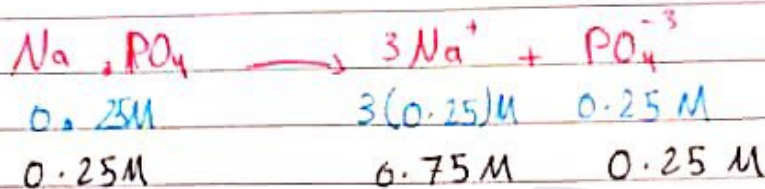 Na₃PO₄ → 3Na⁺ + PO₄⁻³
0.25M 3(0.25)M 0.25 M
0.25M 0.75M 0.25 M